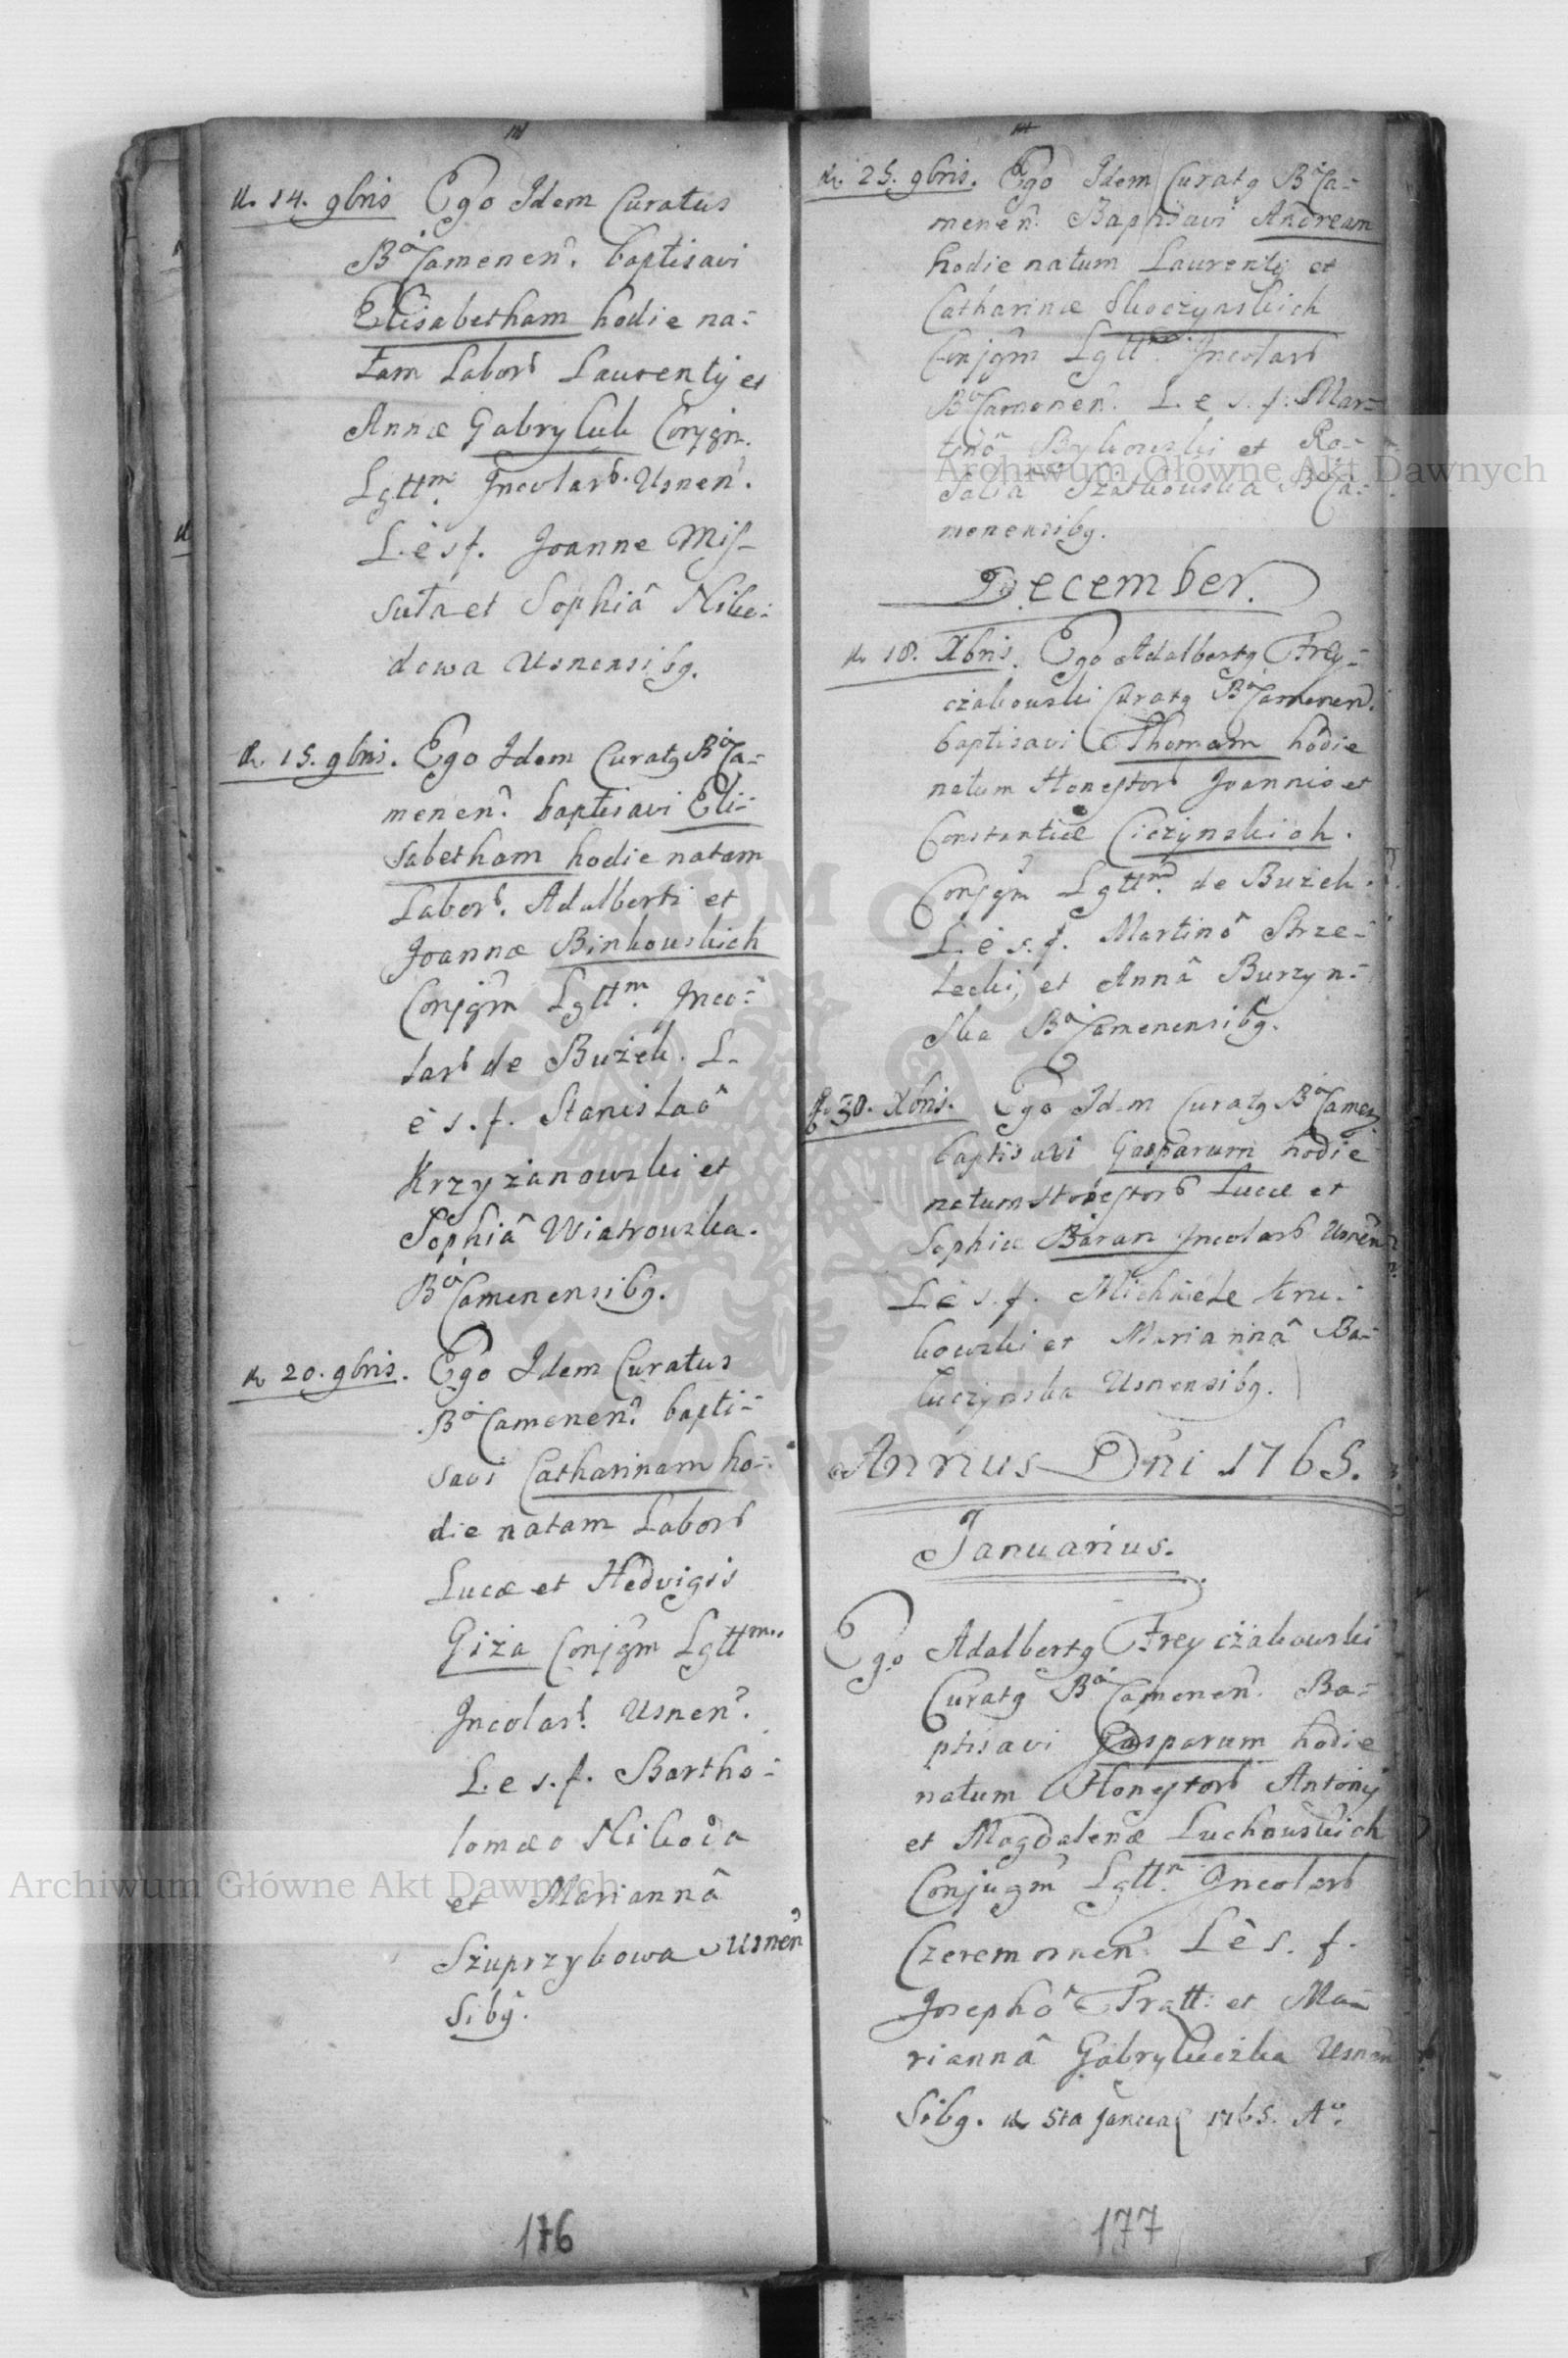 d. 14. 9bris Ego Idem Curatus
BaCamenen. baptisavi
Elisabetham hodie na=
tam Labor. Laurentij et
Annæ Gabryluk Conjgm.
Lgttm. Incolar. Usnen.
L. è s f. Joanne Mis-
suta et Sophiâ Niko=
dowa Usnensibg.
d. 15. 9bris. Ego Idem Curatg BaCa=
menen. baptisavi Eli=
sabetham hodie natam
Labor. Adalberti et
Joannæ Binkowskich
Conjgm Lgttm. Inco=
lar de Bużek. L.
è s. f. Stanislaô
Krzyżanowski et
Sophiâ Wiatrowska.
BaCamenensibg.
d. 20. 9bris. Ego Idem Curatus
BaCamenen. bapti=
savi Catharinam ho=
die natam Labor
Lucæ et Hedvigis
Giża Conjgm Lgttm.
Incolar. Usnen.
L. e s. f. Bartho=
lomæo Nikoda
et Mariannâ
Szuprzykowa Usnen
sibg.
176
d. 25. 9bris. Ego Idem Curatg BaCa=
menen. Baptisavi Andream
hodie natum Laurentij et
Catharinæ Skoczynskich
Conjgm Lgttm. Incolar
BaCamenen. L. e s. f. Mar=
tinô Bykowski et Ro=
salia Szatkowska BaCa=
menensibg.
December.
d. 18. Xbris. Ego Adalbertg Frey=
czakowski Curatg BaCamenen.
baptisavi Thomam hodie
natum Honestor Joannis et
Constantiæ Ciczynskich.
Conjgm Lgttm. de Bużek.
L. è s. f. Martinô Strze=
lecki, et Annâ Burzyn=
ska BaCamenensibg.
d. 30. Xbris. Ego Idem Curatg BaCamen
baptisavi Gasparum hodie
natum Honestor Lucæ et
Sophiæ Baran Incolar Usnen
L. è s. f. Michaele Kru=
kowski et Mariannâ Ba=
luczynska Usnensibg.
Annus Dni 1765.
Januarius.
Ego Adalbertg Freyczakowski
Curatg BaCamenen. Ba=
ptisavi Gasparum hodie
natum Honestor Antonij
et Magdalenæ Luchowskich
Conjugm Lgttm. Incolar
Czeremosnen. L è s. f.
Josephô Pratt: et Ma=
riannâ Gabryluczka Usnen
sibg. d 5ta Januar 1765. Ao.
177
Archiwum Główne Akt Dawnych
Archiwum Główne Akt Dawnych